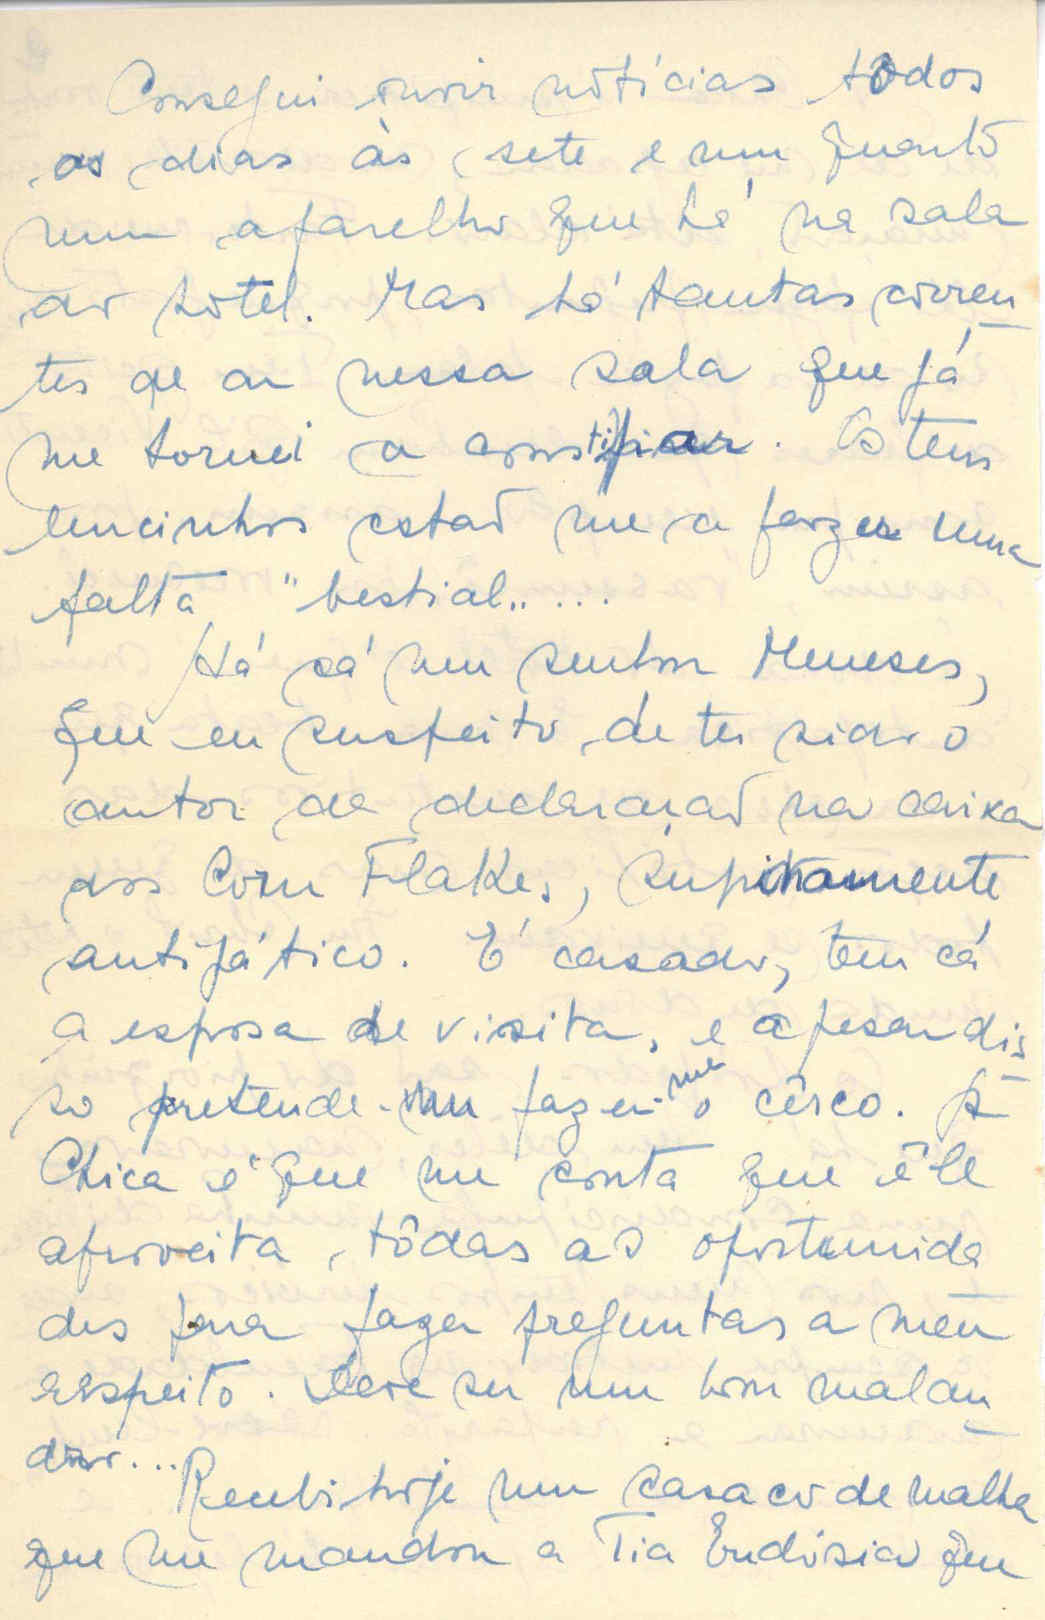 Consegui ouvir notícias todos
os dias às sete e um quarto
num aparelho que há na sala
do hotel. Mas há tantas corren
tes de ar nessa sala que já
me tornei a constipar. Os teus
lencinhos estão me a fazer uma
falta "bestial"....
Há cá um senhor Meneses,
que eu suspeito de ter sido o
autor da declaração na caixa
dos Corn Flakes, supinamente
antipático. É casado, tem cá
a esposa de visita, e apesar dis
so pretende fazer-me o cêrco. A
Chica é que me conta que êle
aproveita tôdas as oportunida
des para fazer preguntas a meu
respeito. Deve ser um bom malan
dro...
Recebi hoje um casaco de malha
que me mandou a Tia Eudósia que